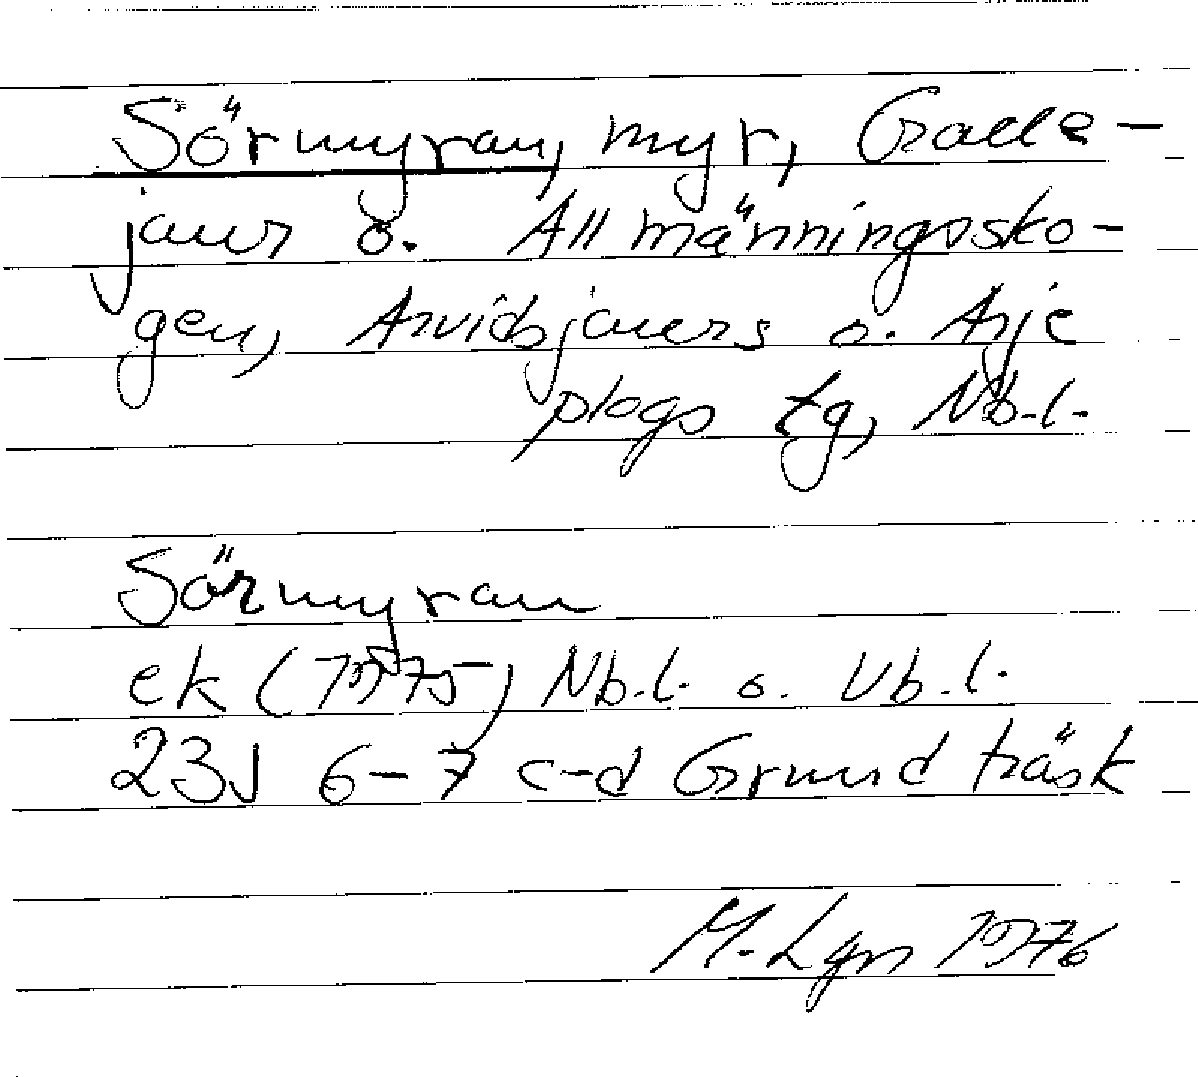 Sörmyran, myr, Galle-
jaur o. Allmänningssko-
gen, Arvidsjaurs o. Arje
plogs tg, Nb.l.
Sörmyran
ek (1975) Nb.l. o. Vb.l.
23J 6-7 c-d Grundträsk
M. Lgn 1976